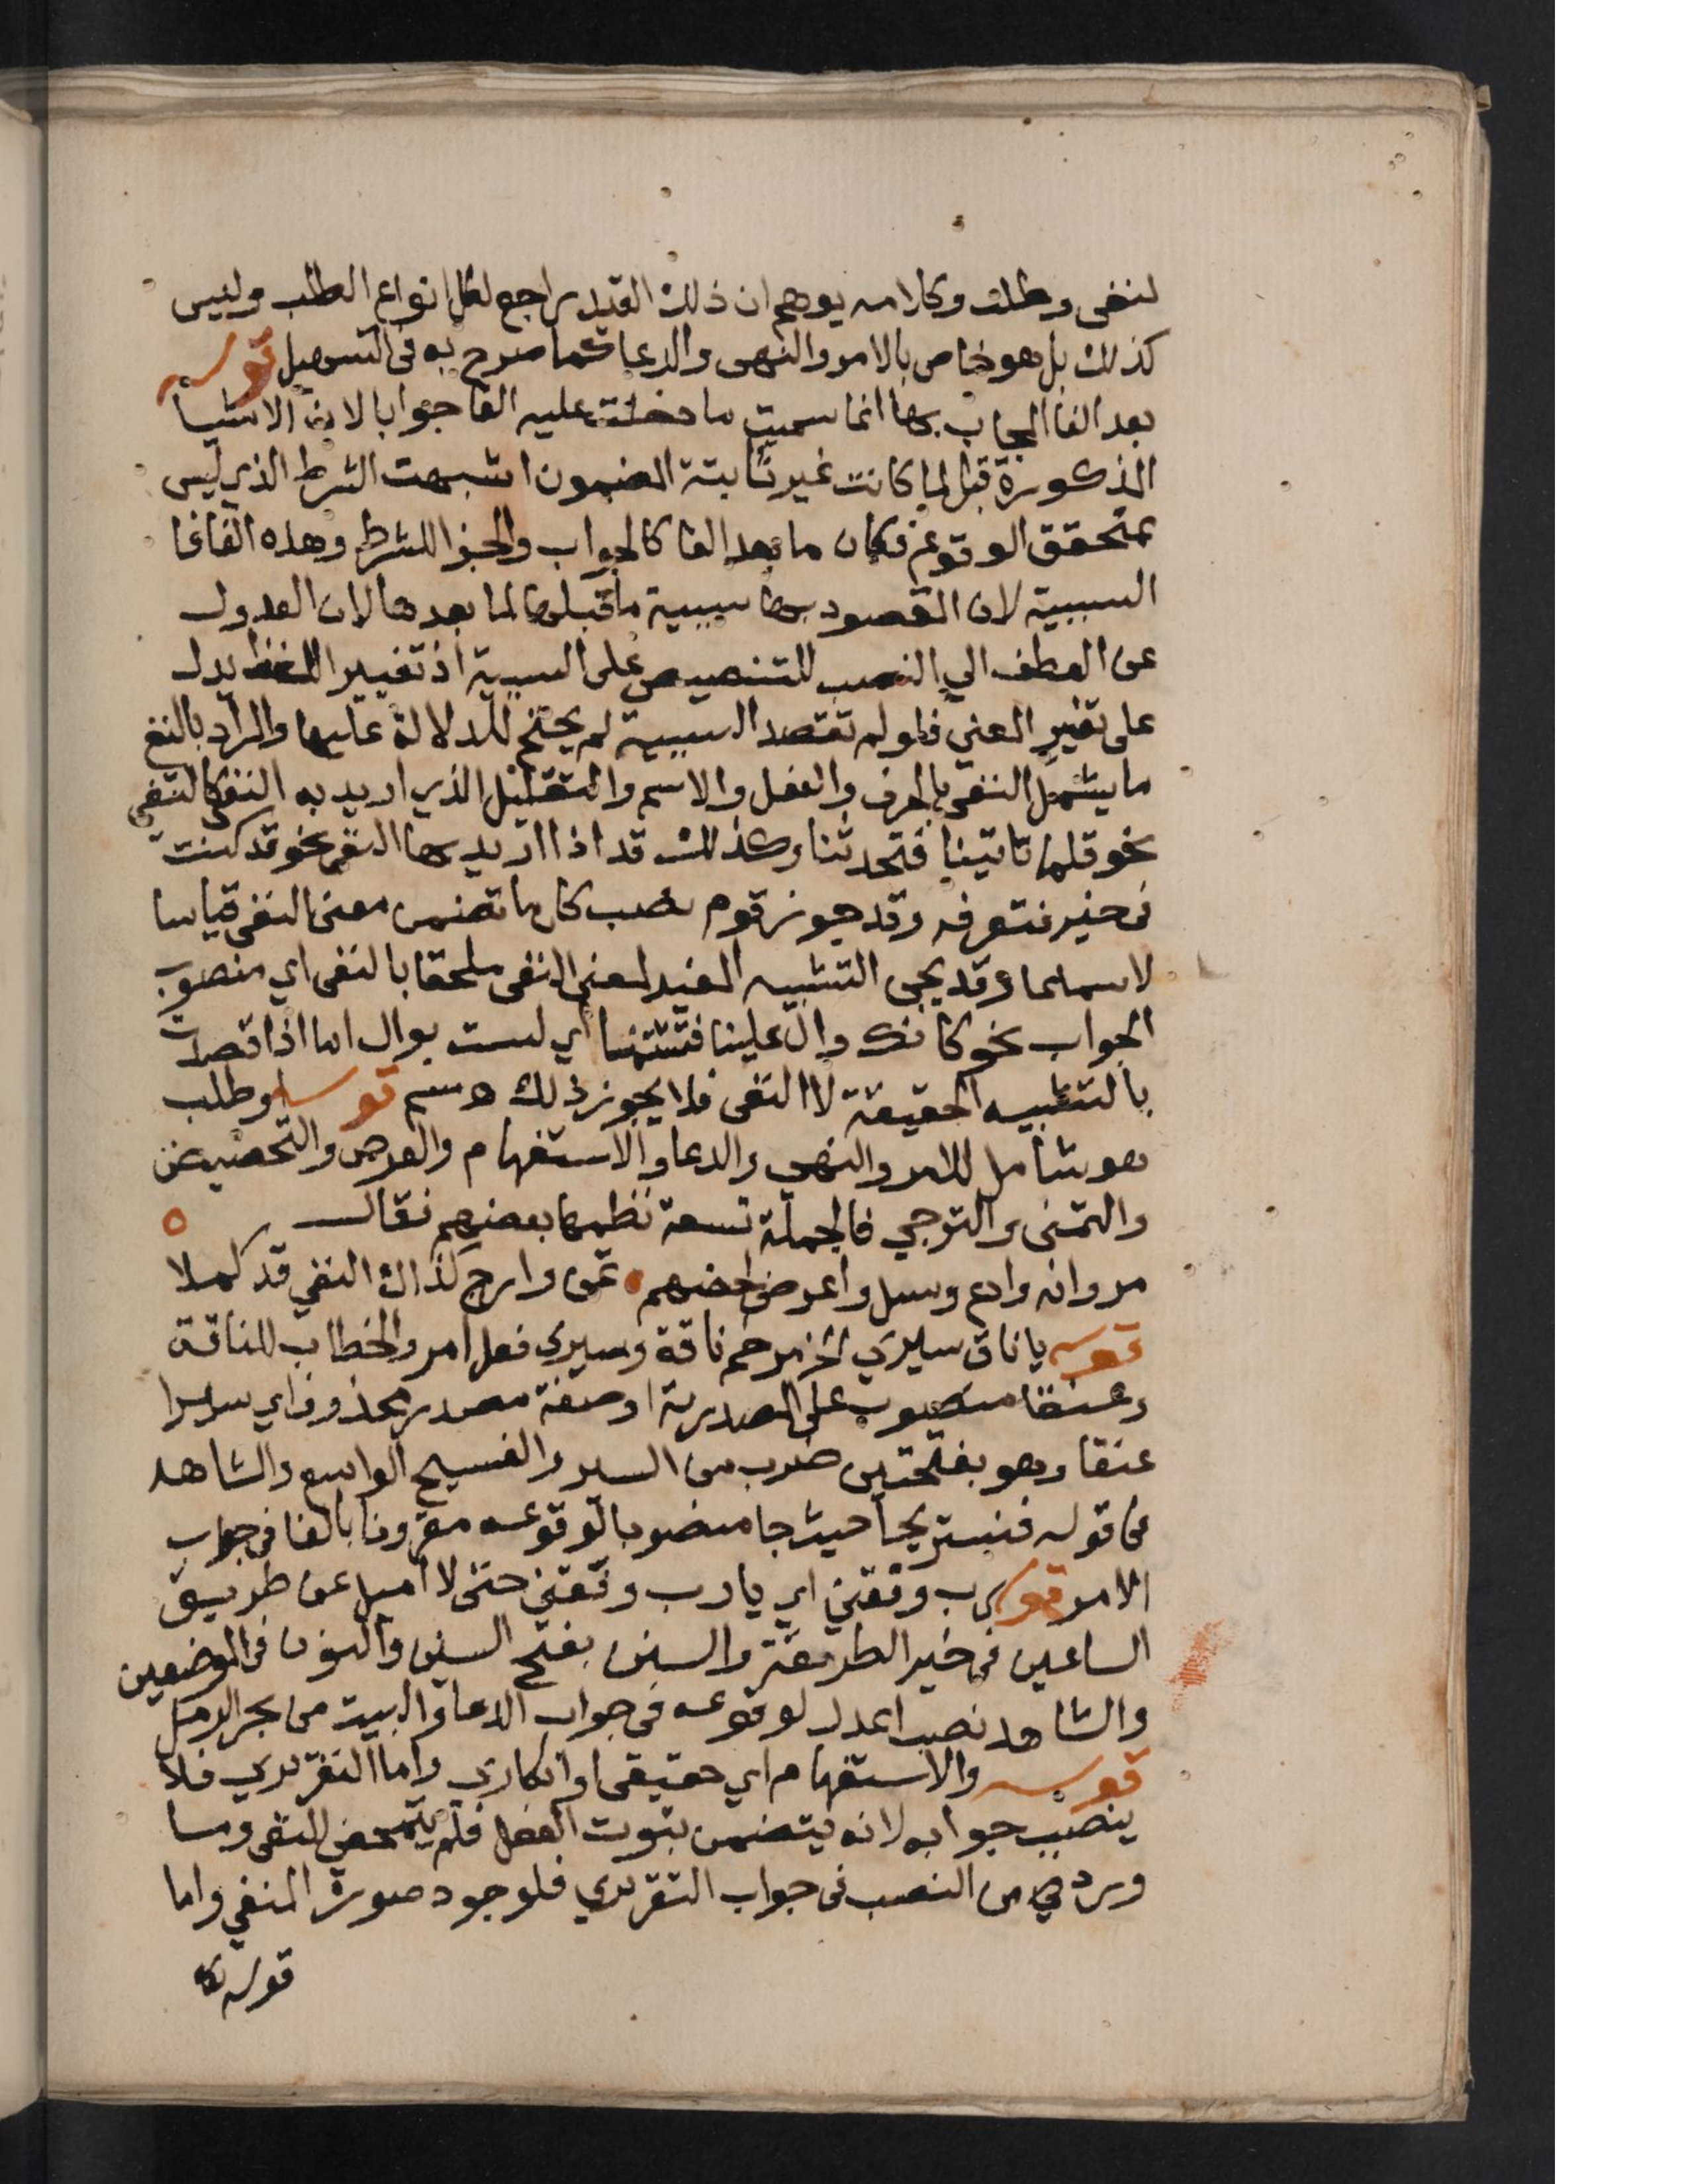 لنفى وطلب وكلامه يوهم ان ذلك القيد راجع لكل انواع الطلب وليس
كذلك بل هو خاص بالامر والنهى والدعا كما صرح به فى التسهيل قوله
بعد الفا المجاب بها انما سميت ما دخلت عليه الفا جوابا لان الاشيا
المذكورة قبل لما كانت غير ثابتة المضمون اشبهت الشرط الذي ليس
بمتحقق الوقوع فكان ما بعد الفا كالجواب والجزا للشرط وهذه الفا فا
السببية لان المقصود بها سببية ما قبلها لما بعدها لان العدول
عن العطف الي النصب للتنصيص على السببية اذ تغيير اللفظ يدل
على تغير المعني فلو لم تقصد السببية لم يحتج للدلالة عليها والمراد بالنفي
ما يشمل النفى بالحرف والفعل والاسم والتقليل الذي اريد به النفى كالنفي
نحو قلما تاتينا فتحدثنا وكذلك قد اذا اريد بها النفى نحو قد كنت
فى خير فتعرفه وقد جوز قوم نصب كل ما تضمن معنى النفى قياسا
لا سماعا وقد يجى التشبيه المفيد لمعنى النفى ملحقا بالنفى اي منصوب
الجواب نحو كانك وال علينا فتشتمنا اي لست بوال اما اذا قصدت
بالتشبيه الحقيقة لا النفى فلا يجوز ذلك قوله وطلب
هو شامل للامر والنهى والدعا والاستفهام والعرض والتحضيض
والتمنى والترجي فالجملة تسعة نظمها بعضهم فقال
مر وانه وادع وسل واعرض لحضهم تمن وارج كذاك النفي قد كملا
قوله يا ناق سيري الخ مرخم ناقة وسيرى فعل امر والخطاب للناقة
وعنقا منصوب على المصدرية او صفة مصدر محذوف اي سيرا
عنقا وهو بفتحتين ضرب من السير والفسيح الواسع والشاهد
فى قوله فنستريحا حيث جا منصوبا لوقوعه مقرونا بالفا فى جواب
الامر قوله رب وفقني اي يا رب وفقنى حتى لا اميل عن طريق
الساعين فى خير الطريقة والسنن بفتح السين والنون فى الموضعين
والشاهد نصب اعدل لوقوعه فى جواب الدعا والبيت من بحر الرمل
قوله والاستفهام اي حقيقى او انكاري واما التقريري فلا
ينصب جوابه لانه يتضمن ثبوت الفعل فلم يتمحض للنفى وما
ورد من النصب فى جواب التقريري فلوجود صورة النفي واما
قوله